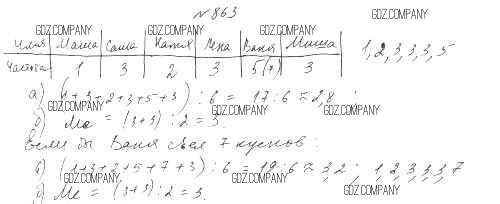 №863
GDZ.COMPANY GDZ.COMPANY GDZ.COMPANY
Имя Маша Саша Катя Лена Ваня Миша
Частота 1 3 2 3 5(7) 3
1, 2, 3, 3, 3, 5
GDZ.COMPANY GDZ.COMPANY GDZ.COMPANY
а) (1+3+2+3+5+3) : 6 = 17 : 6 ≈ 2,8 ;
GDZ.COMPANY GDZ.COMPANY
б) Me = (3+3) : 2 = 3.
Если бы Ваня съел 7 кусков:
в) (1+3+2+5+7+3) : 6 = 19 : 6 ≈ 3,2 ; 1, 2, 3, 3, 3, 7
GDZ.COMPANY GDZ.COMPANY GDZ.COMPANY
г) Me = (3+3) : 2 = 3.